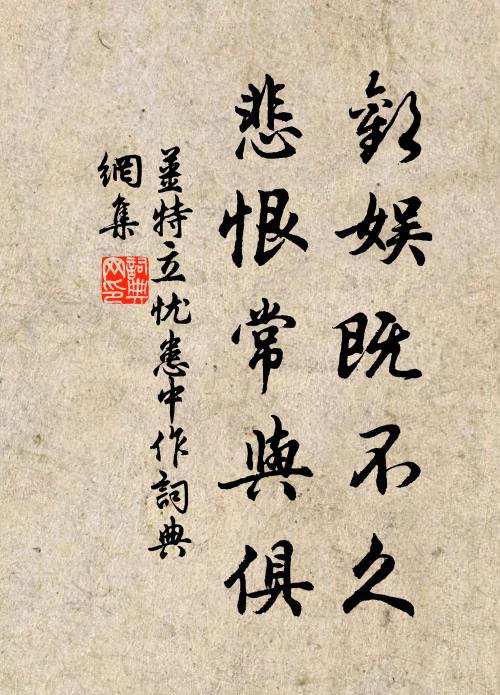 歡娛既不久
悲恨常與俱
薑特立忧患中作詞典
網集
詞典
网印